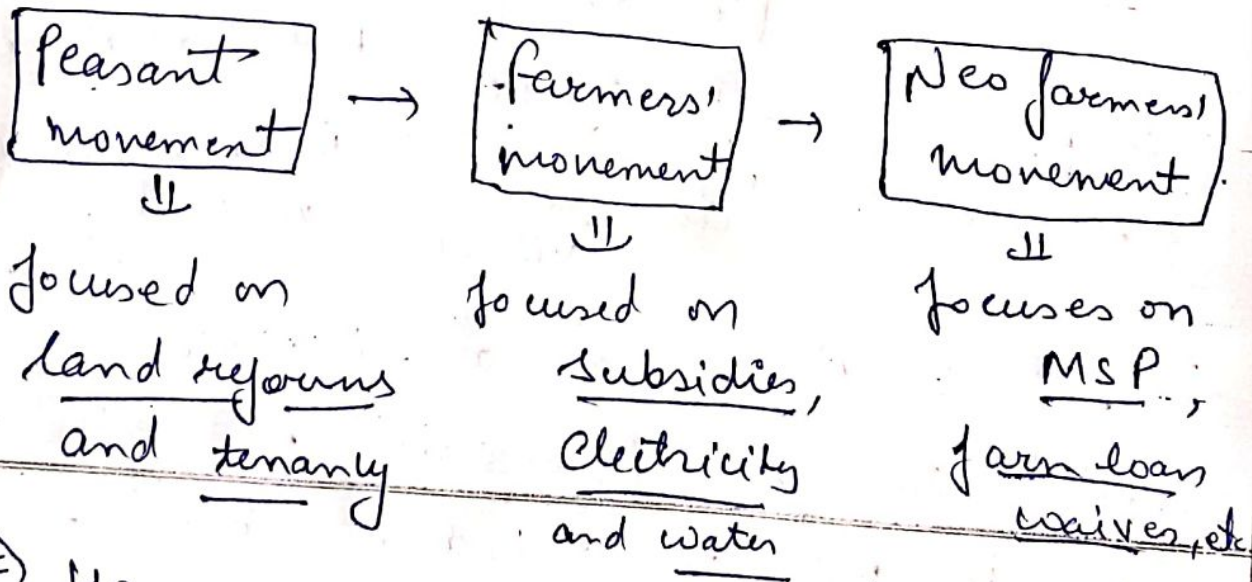 Peasant movement
→
farmers' movement
→
Neo farmers' movement
⇓
focused on
land reforms
and tenancy
⇓
focused on
subsidies,
electricity
and water
⇓
focuses on
MSP,
farm loan
waiver, etc